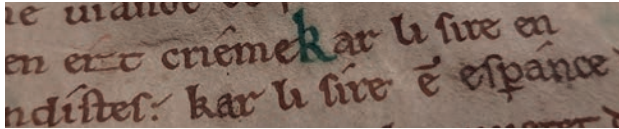 ne uiande
en ert crieme kar li sire en
ndistes: kar li sire ē espance